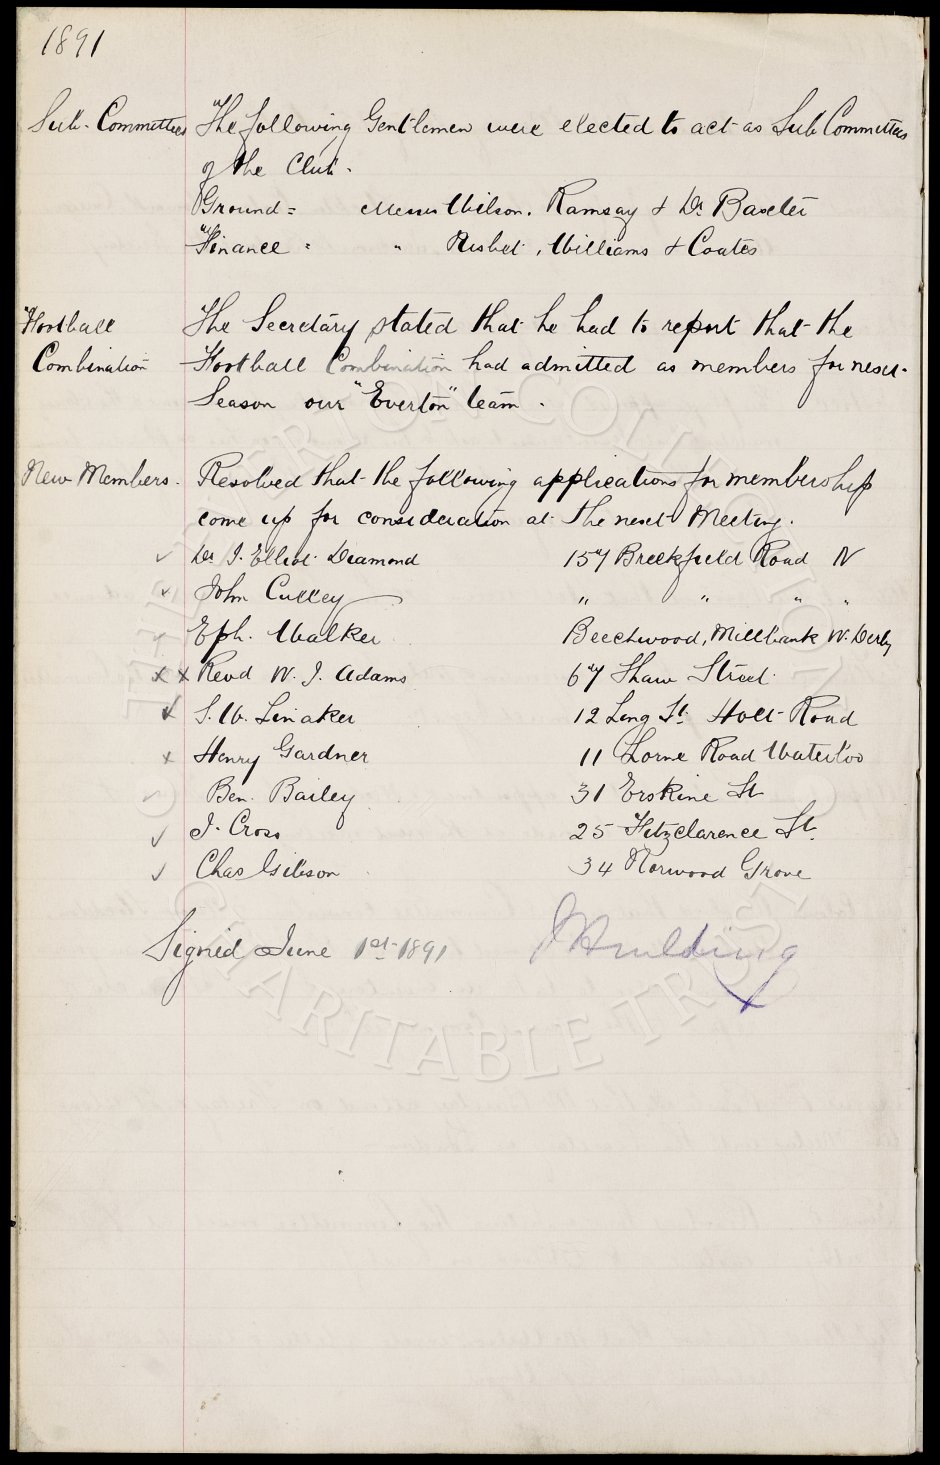 1891
Sub-Committees The following Gentlemen were elected to act as Sub Committees
of the Club.
Ground = Messrs Wilson, Ramsay & Dr Baxter
Finance = " Nisbet, Williams & Coates
Football The Secretary stated that he had to report that the
Combination Football Combination had admitted as members for next
Season our "Everton" team.
New Members. Resolved that the following applications for membership
come up for consideration at the next Meeting.
✓ Dr J. Elliot Diamond 157 Breckfield Road N
✓ John Culley " " " "
✓ Eph. Walker Beechwood, Millbank W. Derby
x x Revd W. J. Adams 67 Shaw Street
✓ S. W. Linaker 12 Ling St Holt Road
x Henry Gardner 11 Lorne Road Waterloo
✓ Ben. Bailey 31 Erskine St
✓ J. Cross 25 Fitzclarence St.
✓ Chas Gibson 34 Norwood Grove
Signed June 1st 1891 J Houlding
THE EVERTON COLLECTION
CHARITABLE TRUST